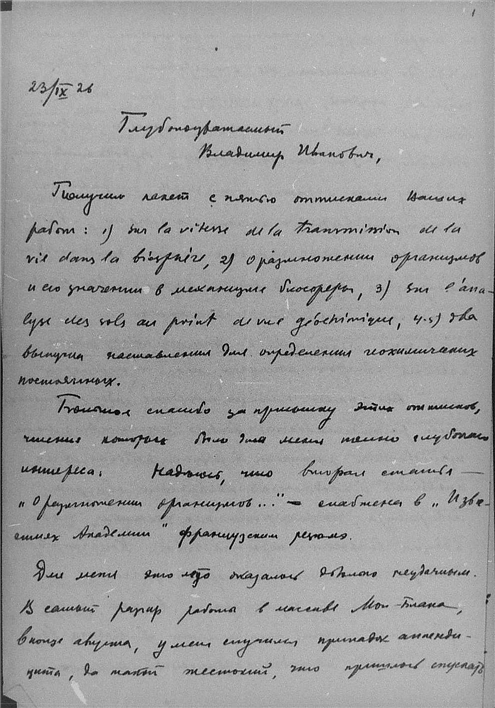 1
23/IX 26
Глубокоуважаемый
Владимир Иванович,
Получил пакет с пятью оттисками Ваших
работ: 1) sur la vitesse de la transmission de la
vie dans la biosphère, 2) О размножении организмов
и его значении в механизме биосферы, 3) sur l'ana-
lyse des sols au point de vue géochimique, 4-5) два
выпуска наставления для определения геохимических
постоянных.
Большое спасибо за присылку этих оттисков,
чтение которых было для меня полно глубокого
интереса. Надеюсь, что вторая статья —
„О размножении организмов..." — снабжена в „Изве-
стиях Академии" французским резюме.
Для меня это лето оказалось неудачным.
В самый разгар работы в массиве Мон-Блана,
в конце августа, у меня случился припадок аппенди-
цита, да такой жестокий, что пришлось спускать